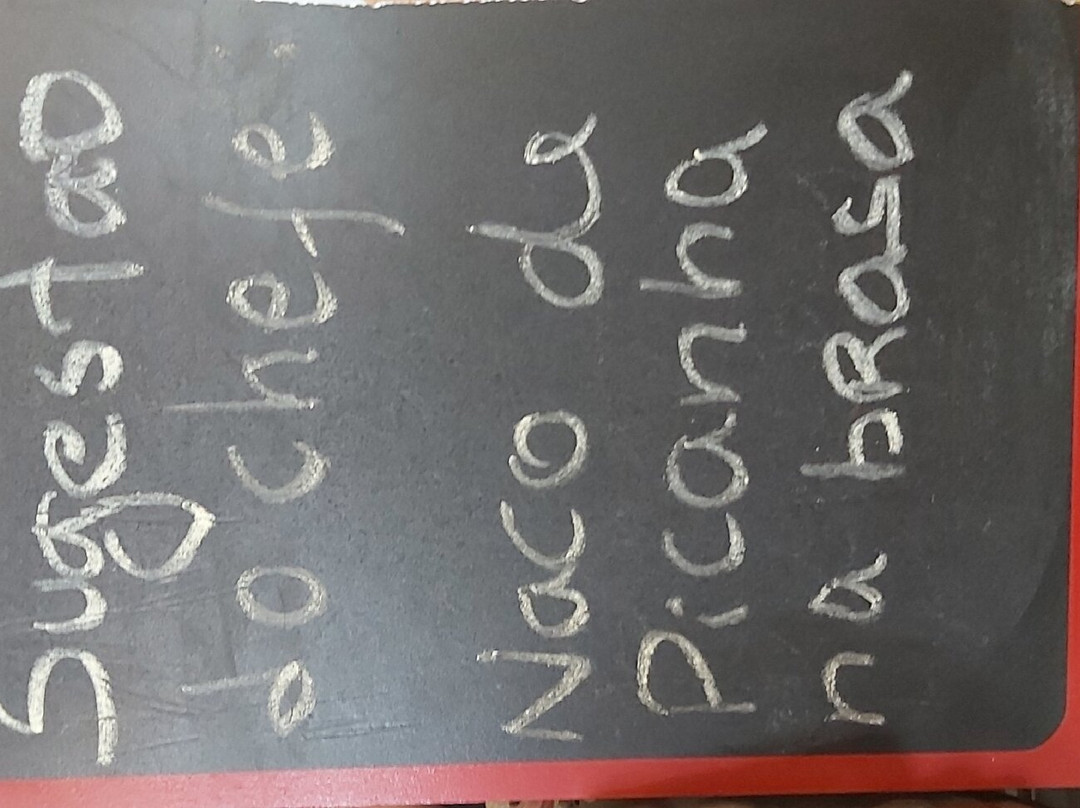 Sugestao
do chefe:
Naco de
Picanha
na bRasa